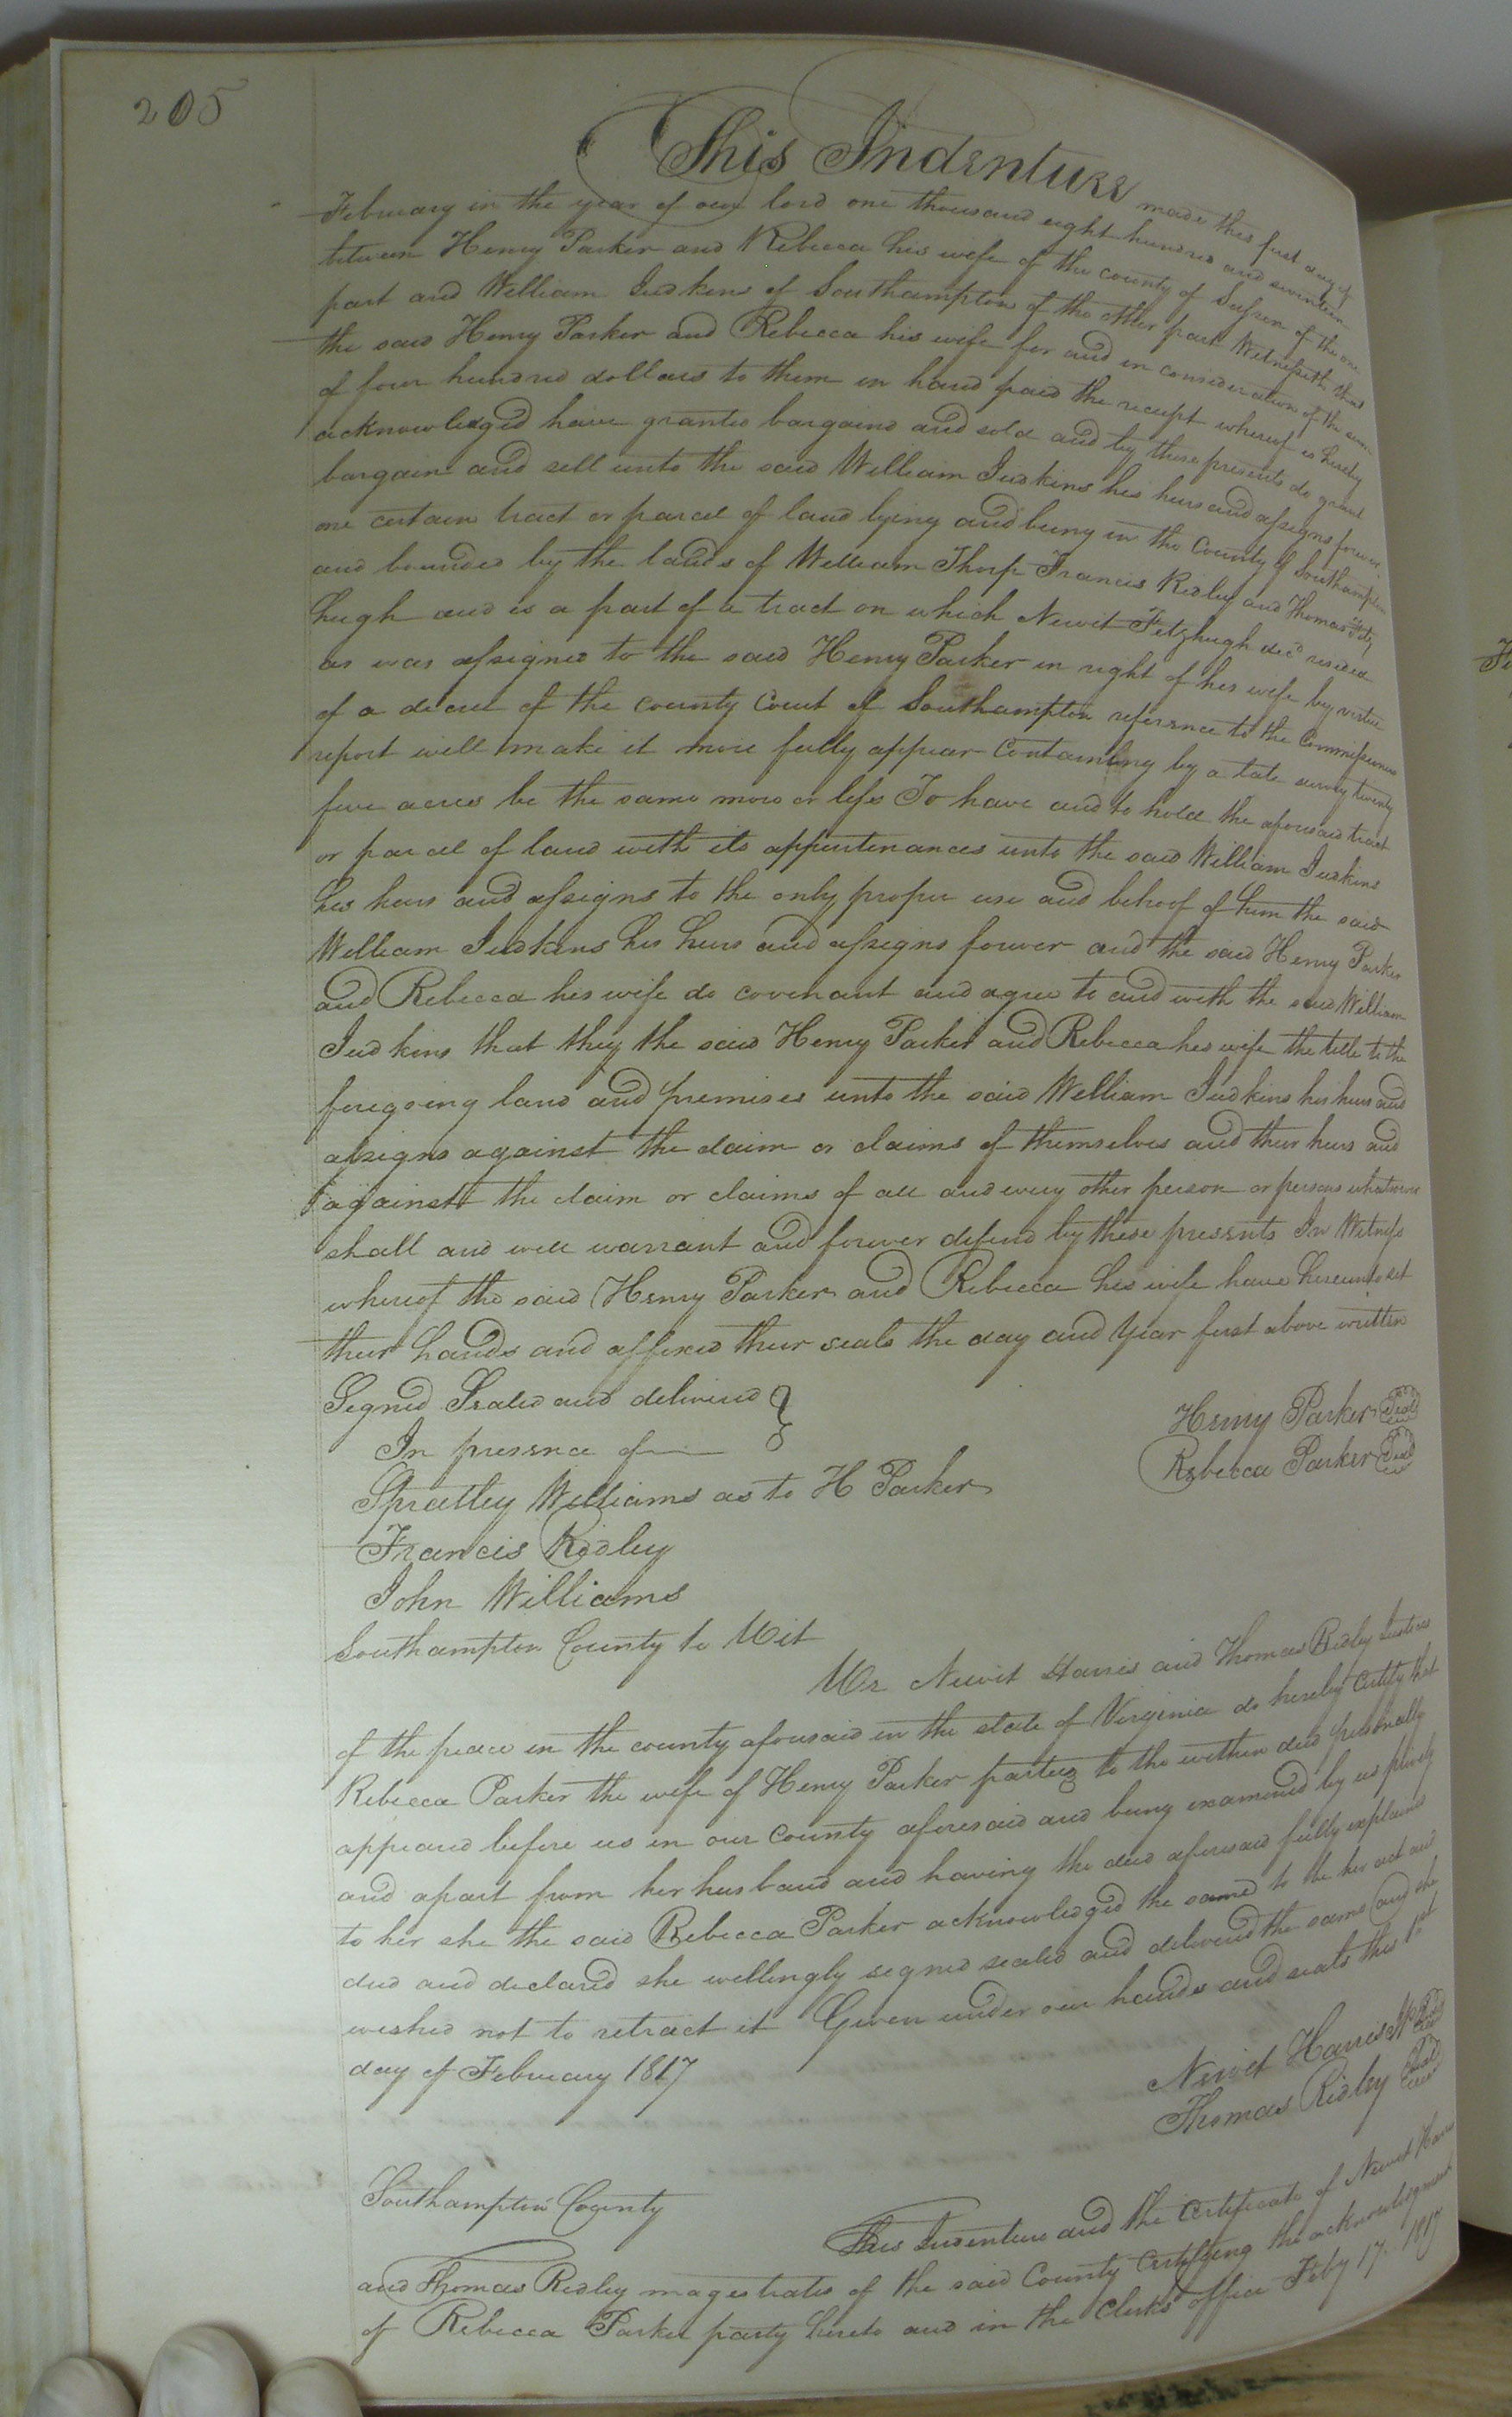 205
This Indenture made this first day of
February in the year of our lord one thousand eight hundred and seventeen
between Henry Parker and Rebecca his wife of the county of Sussex of the one
part and William Judkins of Southampton of the other part Witnesseth that
the said Henry Parker and Rebecca his wife for and in consideration of the sum
of four hundred dollars to them in hand paid the receipt whereof is hereby
acknowledged have granted bargaind and sold and by these presents do grant
bargain and sell unto the said William Judkins his heirs and assigns forever
one certain tract or parcel of land lying and being in the County of Southampton
and bounded by the lands of William Thorp Francis Ridley and Thomas Fitz
hugh and is a part of a tract on which Newit Fitzhugh decd resided
as was assigned to the said Henry Parker in right of his wife by virtue
of a decree of the county Court of Southampton reference to the Commissioners
report will make it more fully appear Containing by a late survey twenty
five acres be the same more or less To have and to hold the aforesaid tract
or parcel of land with its appurtenances unto the said William Judkins
his heirs and assigns to the only proper use and behoof of him the said
William Judkins his heirs and assigns forever and the said Henry Parker
and Rebecca his wife do covenant and agree to and with the said William
Judkins that they the said Henry Parker and Rebecca his wife the title to the
foregoing land and premises unto the said William Judkins his heirs and
assigns against the claim or claims of themselves and their heirs and
against the claim or claims of all and every other person or persons whatsoever
shall and will warrant and forever defend by these presents In Witness
whereof the said Henry Parker and Rebecca his wife have hereunto set
their hands and affixed their seals the day and year first above written
Signed Sealed and delivered
In presence of
Henry Parker Seal
Rebecca Parker Seal
Spratley Williams as to H Parker
Francis Ridley
John Williams
Southampton County to Wit
We Newit Harris and Thomas Ridley Justices
of the peace in the county aforesaid in the state of Virginia do hereby certify that
Rebecca Parker the wife of Henry Parker parties to the within deed personally
appeard before us in our County aforesaid and being examined by us privily
and apart from her husband and having the deed aforesaid fully explained
to her she the said Rebecca Parker acknowledged the same to be her act and
deed and declared she willingly signed sealed and delivered the same and she
wished not to retract it Given under our hands and seals this 1st
day of February 1817
Newit Harris Seal
Thomas Ridley Seal
Southampton County
This Indenture and the Certificate of Newit Harris
and Thomas Ridley magestrates of the said County Certifying the acknowledgment
of Rebecca Parker party hereto and in the Clerks office Feby 17. 1817